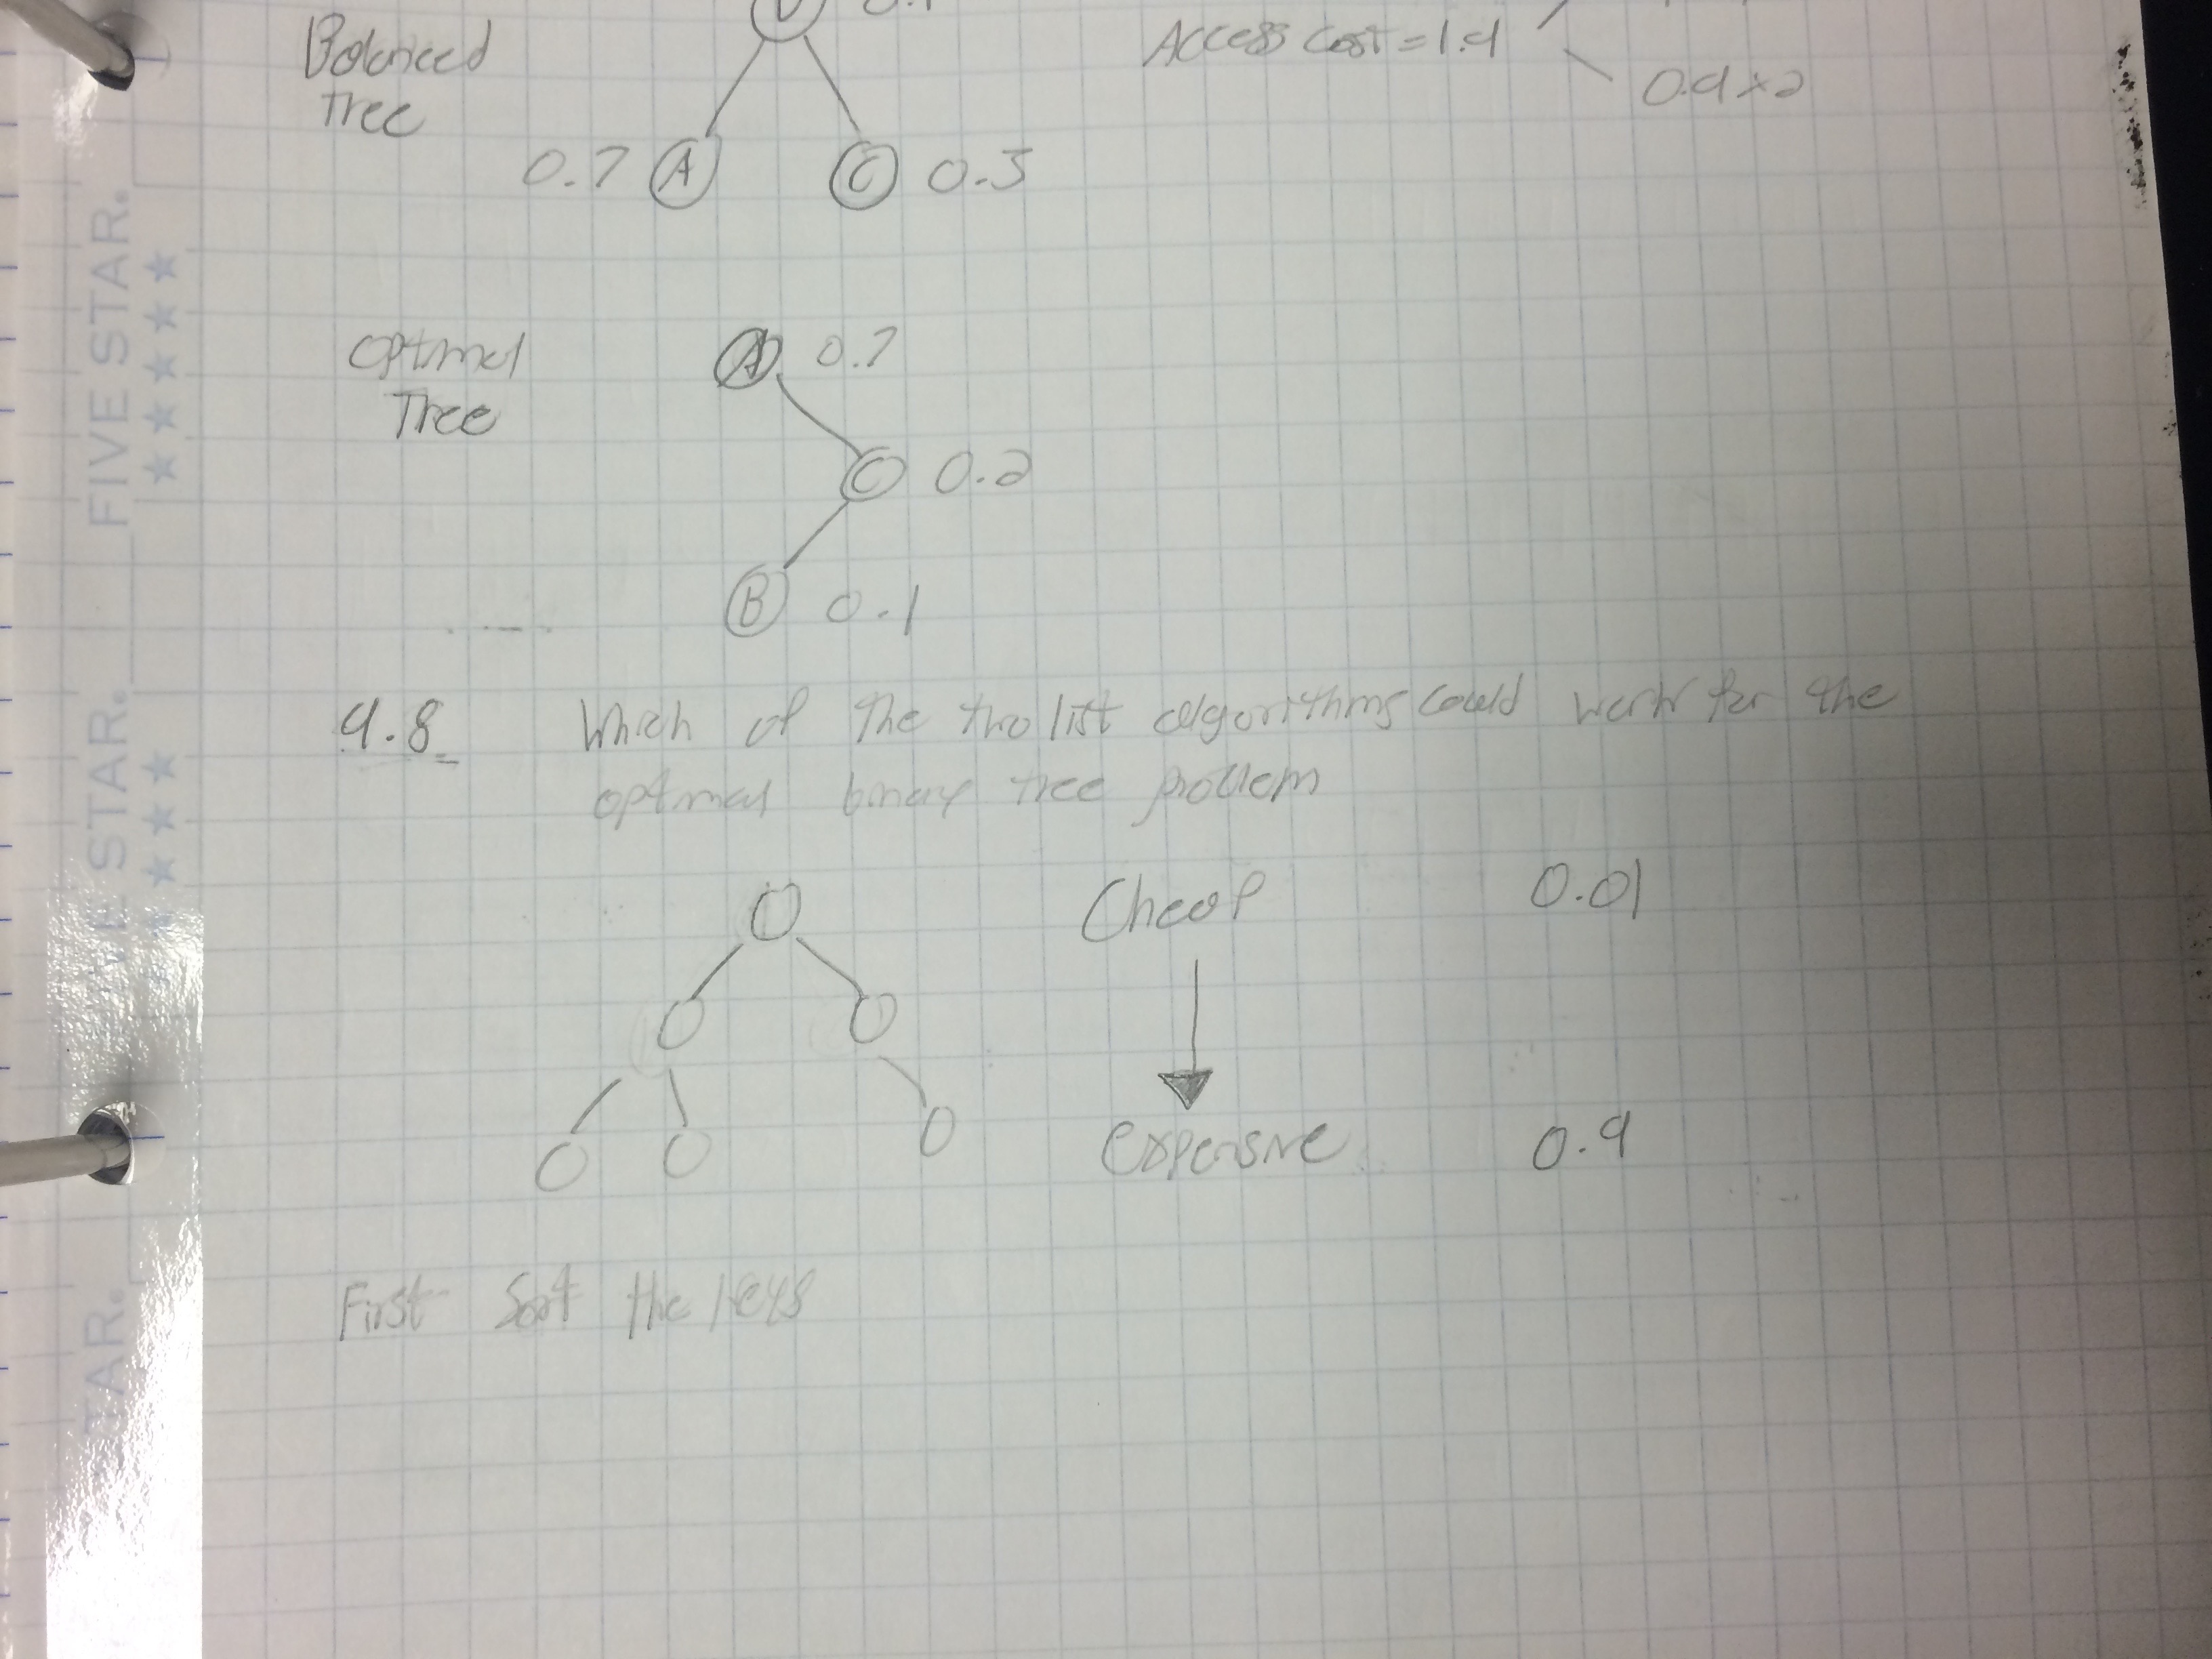 Balanced
Tree
Access cost = 1.4
0.4 x 2
0.7 A
C 0.3
Optimal
Tree
A 0.7
C 0.2
B 0.1
4.8 Which of the two list algorithms could work for the
optimal binary tree problem
Cheap 0.01
expensive 0.9
First Sort the keys
FIVE STAR.
FIVE STAR.
STAR.